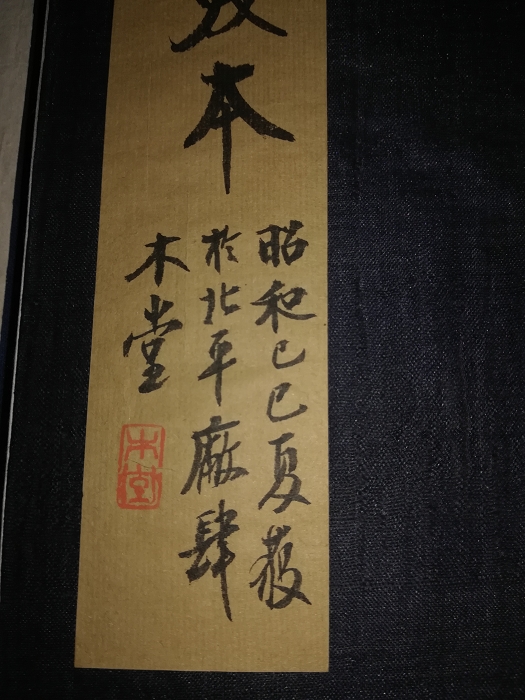 本
昭和己巳夏获
於北平廠肆
木堂
木堂